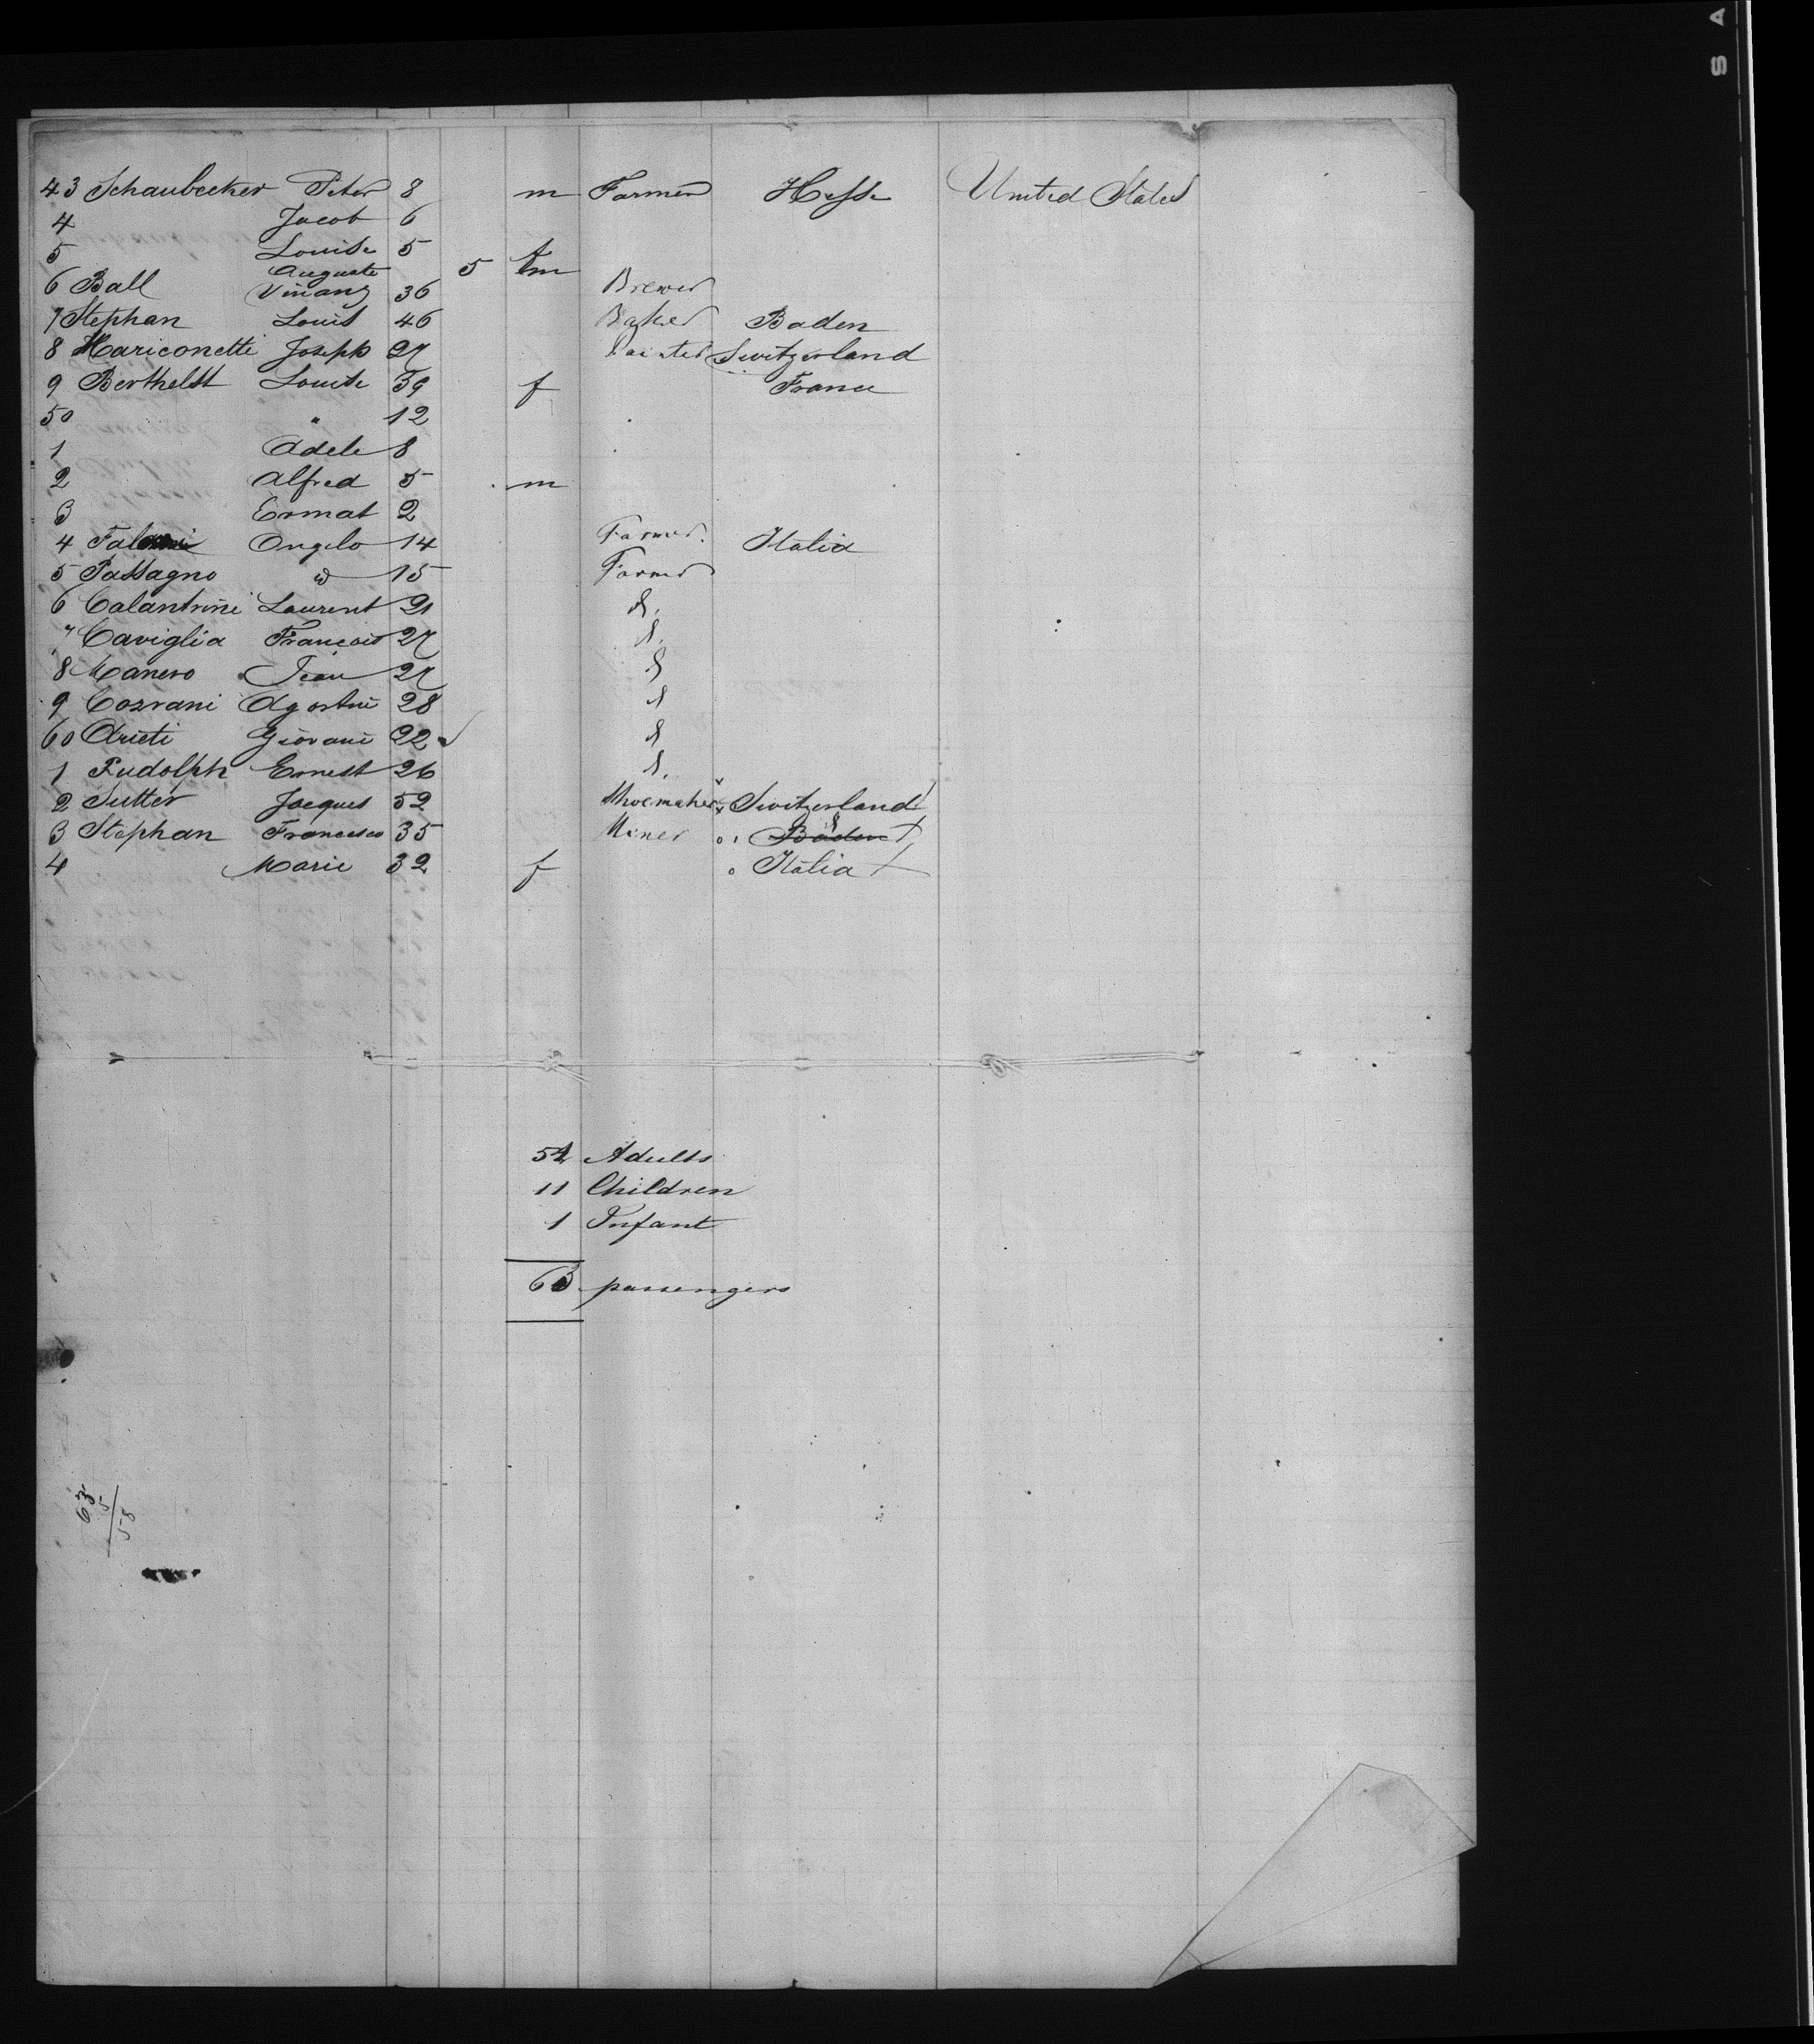 43 Schaubecker Peter 8 m Farmer Hesse United States
4 Jacob 6
5 Louise 5 f
Auguste 5 m
6 Ball 36 Brewer
7 Stephan Louis 46 Baker Baden
8 Mariconetti Joseph 27 Painter Switzerland
9 Berthelst Louise 39 f France
50 " 12
1 Adele 8
2 Alfred 5 m
3 Ermat 2
4 Angelo 14 Farmer. Italia
5 Passagno id 15 Farmer
6 Calantrini Laurent 21 d.
7 Caviglia François 27 d.
8 Manero Jean 27 d
9 Cosrani Agostini 28 d
60 Arieti Giovani 22 d
1 Rudolph Ernest 26 d.
2 Sutter Jacques 52 Shoemaker Switzerland
3 Stephan Francesco 35 Miner Baden
4 Marie 32 f Italia
51 Adults
11 Children
1 Infant
63 passengers
63
5
58
S A